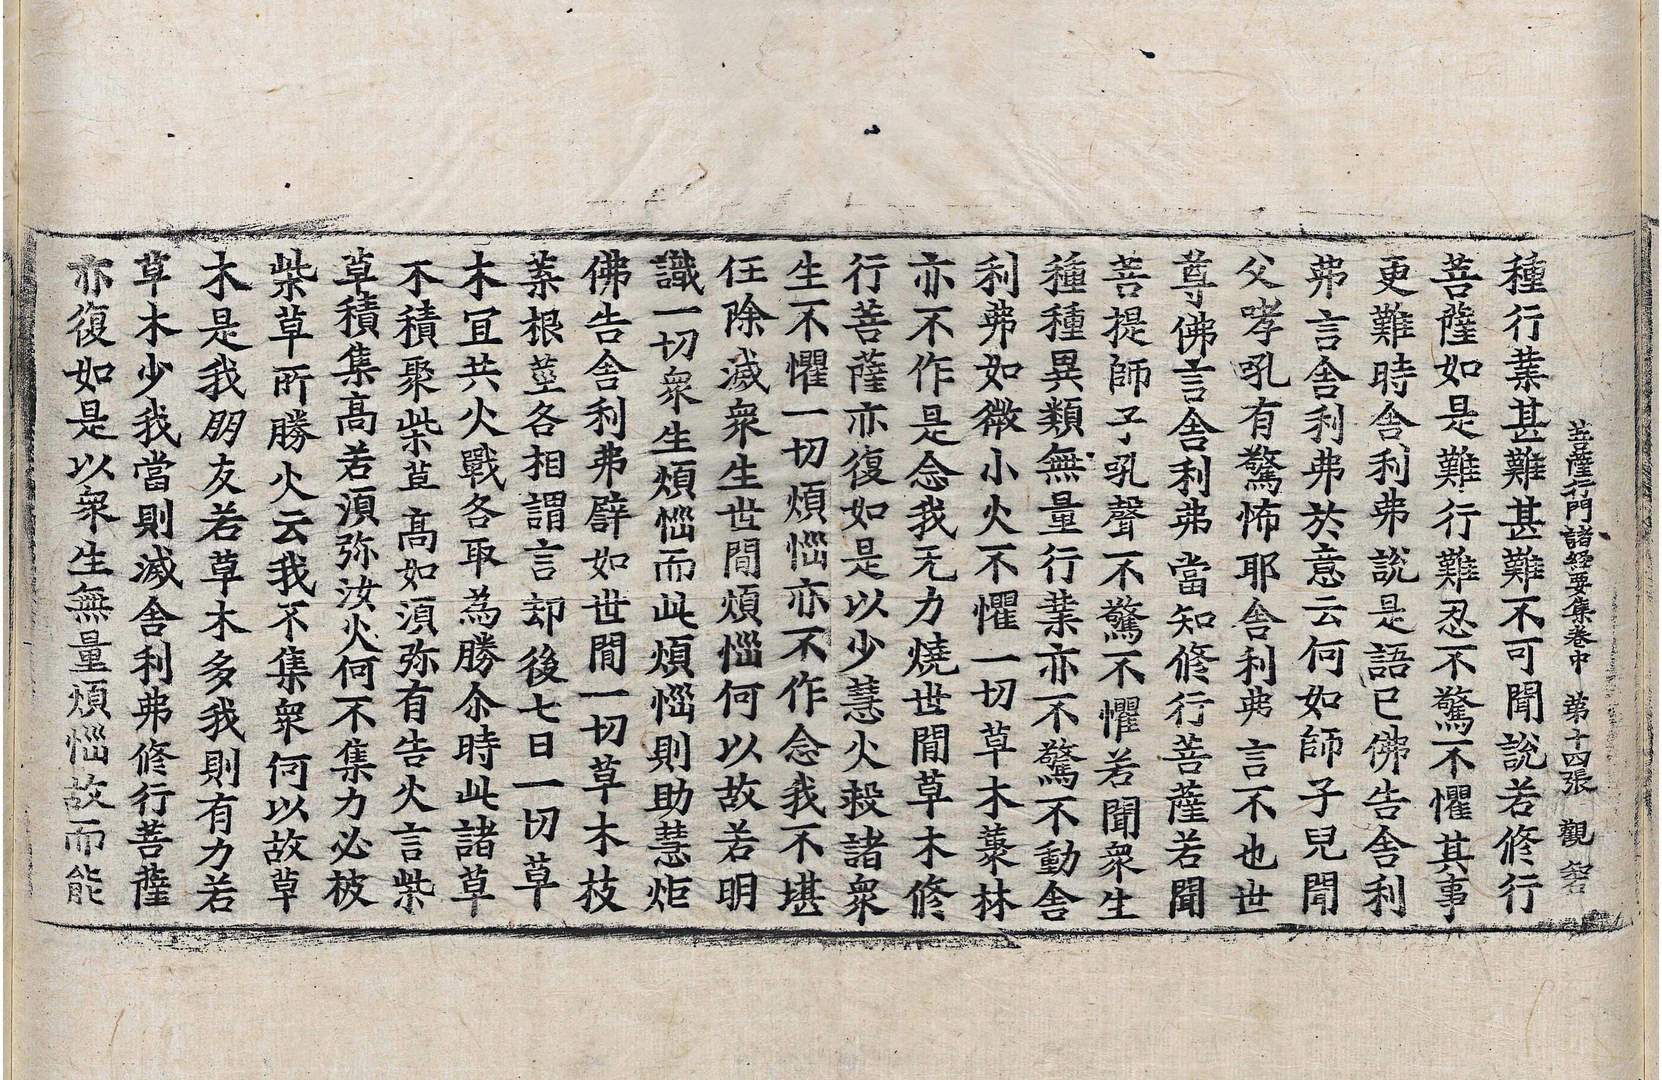 菩薩行門諸經要集卷中 第十四張 觀
種行業甚難甚難不可聞說若修行
菩薩如是難行難忍不驚不懼其事
更難時舍利弗說是語已佛告舍利
弗言舍利弗於意云何如師子兒聞
父哮吼有驚怖耶舍利弗言不也世
尊佛言舍利弗當知修行菩薩若聞
菩提師子吼聲不驚不懼若聞衆生
種種異類無量行業亦不驚不動舍
利弗如微小火不懼一切草木藂林
亦不作是念我无力燒世間草木修
行菩薩亦復如是以少慧火殺諸衆
生不懼一切煩惱亦不作念我不堪
任除滅衆生世間煩惱何以故若明
識一切衆生煩惱而此煩惱則助慧炬
佛告舍利弗譬如世間一切草木枝
葉根莖各相謂言却後七日一切草
木宜共火戰各取為勝尒時此諸草
木積聚柴苴高如湏弥有告火言柴
草積集高若湏弥汝火何不集力必被
柴草所勝火云我不集衆何以故草
木是我朋友若草木多我則有力若
草木少我當則滅舍利弗修行菩薩
亦復如是以衆生無量煩惱故而能